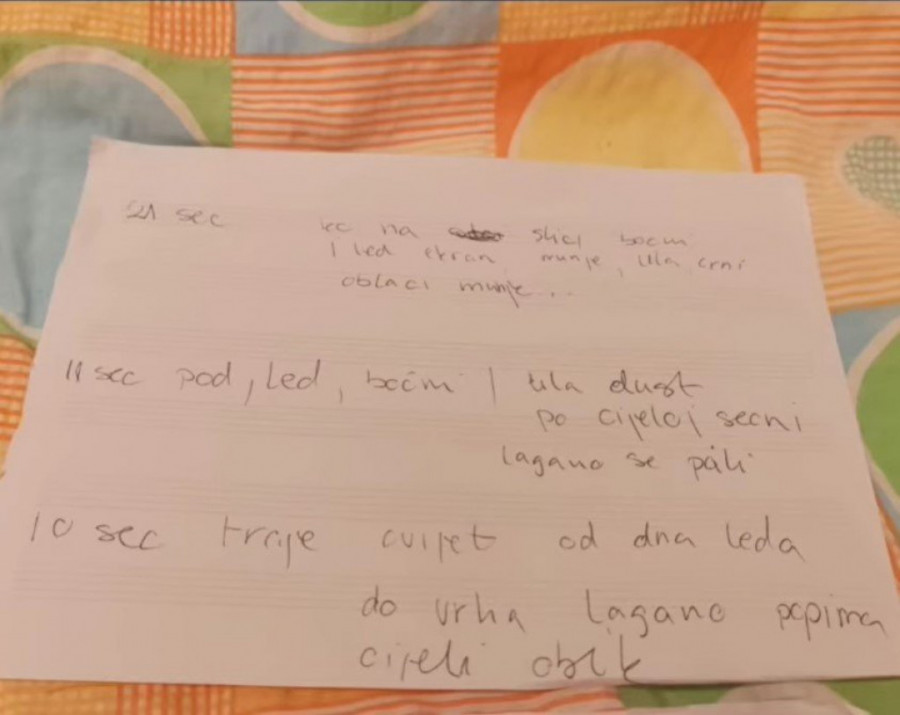 21 sec na slici bočni
1 led ekran munje, crni
oblaci munje...
11 sec pod, led, bočni | lila dust
po cijeloj secni
lagano se pali
10 sec traje cvijet od dna leda
do vrha lagano popima
cijeli oblik